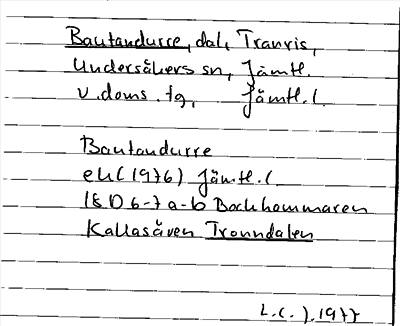 Bautandurre, dal, Tranris,
Undersåkers sn, Jämtl.
v. doms. tg, Jämtl. l.
Bautandurre
ek (1976) Jämtl. l
18 D 6-7 a-b Bockhammaren
Kallasåven Tronndalen
L. ( . ). 1977